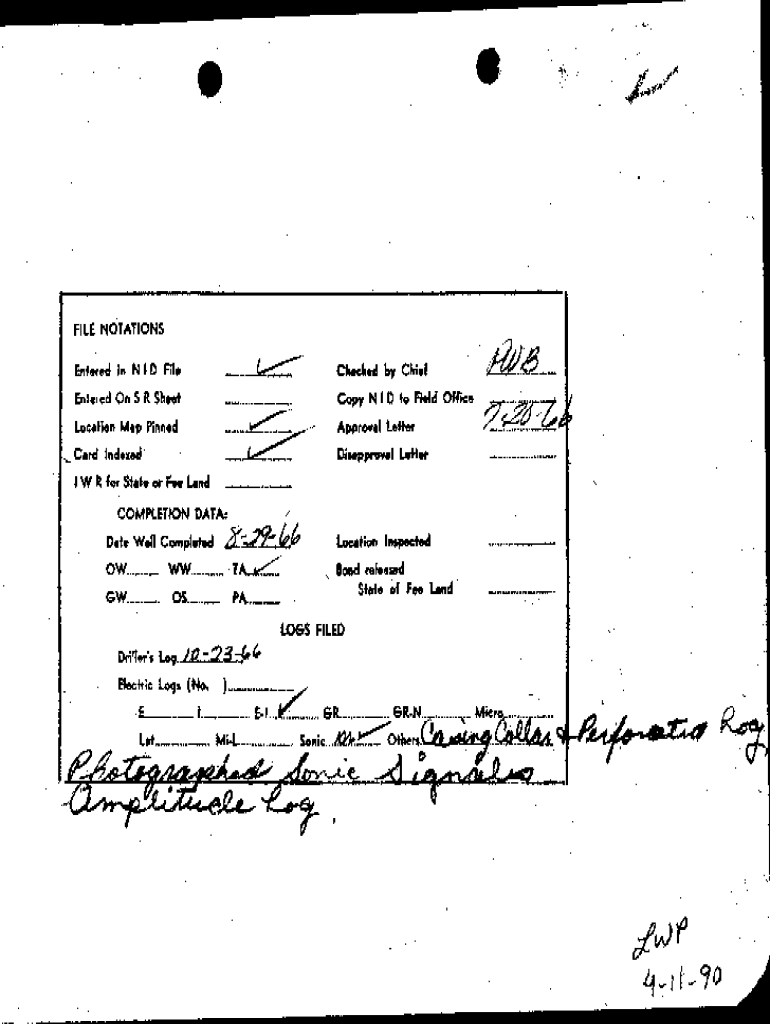 FILE NOTATIONS
Entered in NID File ✓ Checked by Chief PWB
Entered On S R Sheet Copy NID to Field Office
Location Map Pinned ✓ Approval Letter 7-20-66
Card Indexed ✓ Disapproval Letter
I W R for State or Fee Land
COMPLETION DATA:
Date Well Completed 8-29-66 Location Inspected
OW WW TA ✓ Bond released
GW OS PA State of Fee Land
LOGS FILED
Driller's Log 10-23-66
Electric Logs (No. )
E I E-I ✓ GR GR-N Micro
Lat Mi-L Sonic ✓ Others Casing Collar & Perforation Log
Photographed Sonic Signals
Amplitude Log.
LWP
4-11-90